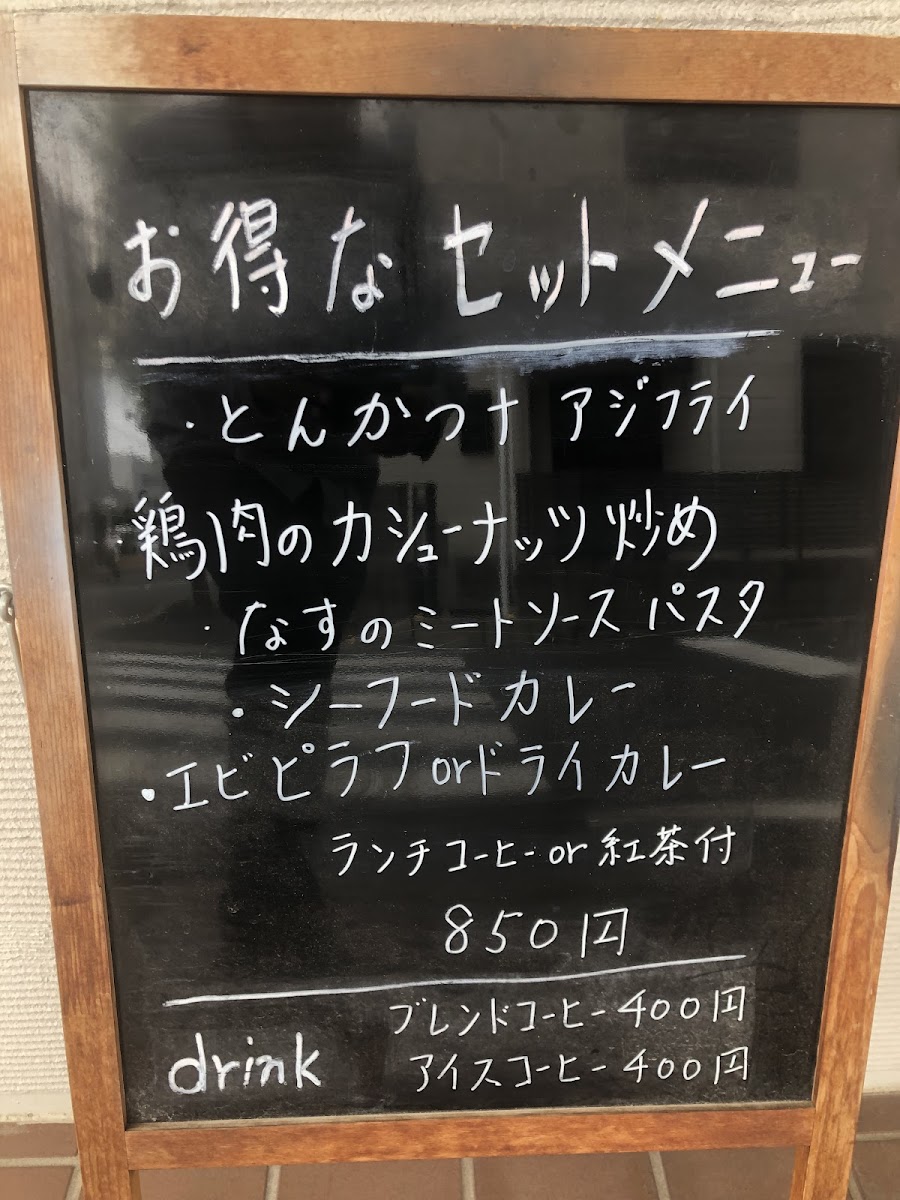 お得なセットメニュー
・とんかつ+ アジフライ
・鶏肉のカシューナッツ炒め
・なすのミートソース パスタ
・シーフードカレー
・エビピラフorドライカレー
ランチコーヒーor紅茶付
850円
ブレンドコーヒー400円
drink
アイスコーヒー400円